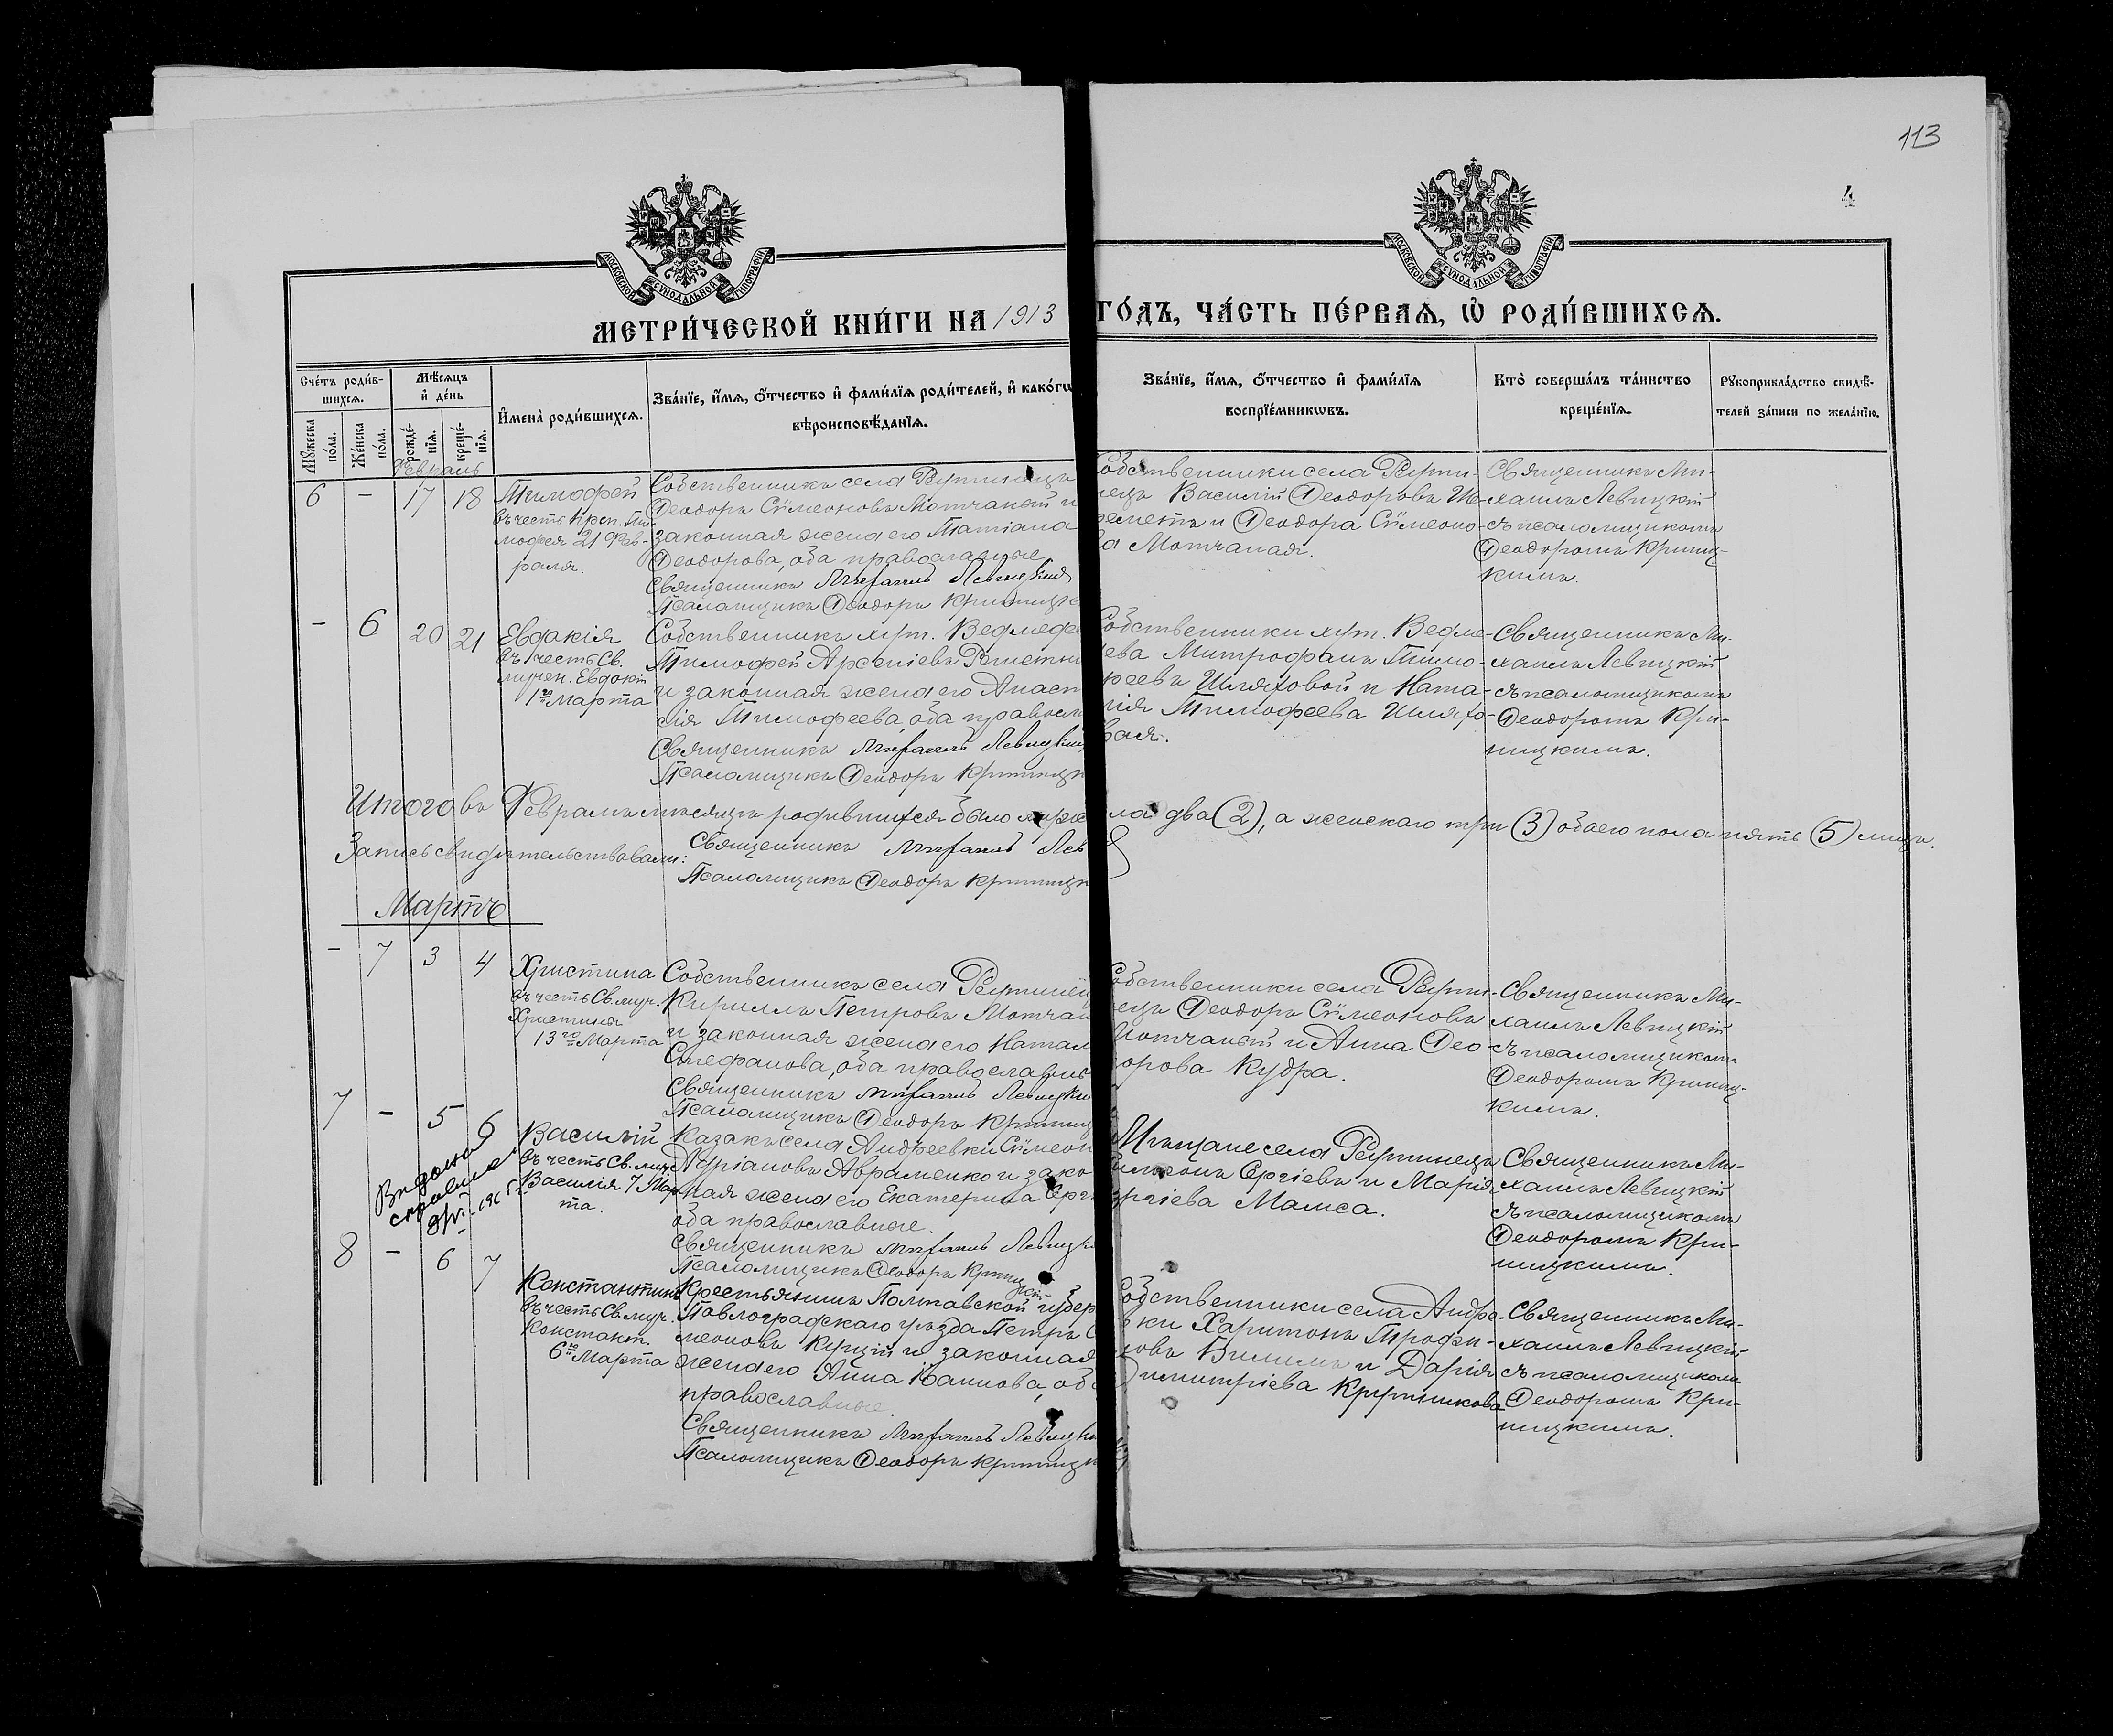 113
4
МОСКОВСКОЙ СѴНОДАЛЬНОЙ ТИПОГРАФІИ
МОСКОВСКОЙ СѴНОДАЛЬНОЙ ТИПОГРАФІИ
МЕТРИ́ЧЕСКОЙ КНИ́ГИ НА 1913 ГО́ДЪ, ЧА́СТЬ ПЕ́РВАѦ, Ѽ РОДИ́ВШИХСѦ.
Сче́тъ роди́в-
шихсѧ.
Мꙋжеска по́ла.
Же́нска по́ла.
Мѣ́сѧцъ
и҆ де́нь
рожде́-
нїѧ.
креще́-
нїѧ.
И҆мена̀ роди́вшихсѧ.
Зва́нїе, и҆́мѧ, ѻ҆́тчество и҆ фами́лїѧ роди́телей, и҆ како́гѡ
вѣроисповѣ́данїѧ.
Зва́нїе, и҆́мѧ, ѻ҆́тчество и҆ фами́лїѧ
воспрїе́мникѡвъ.
Кто̀ соверша́лъ та́инство
креще́нїѧ.
Рꙋкоприкла́дство свидѣ́-
телей за́писи по жела́нїю.
Февраль
6 - 17 18
Тимофей
въ честь преп. Ти-
мофея 21 Фев-
раля.
Собственникъ села
Ѳеодоръ Сѵмеоновъ Мотчаный и
законная жена его Татіана
Ѳеодорова, оба православные
Священникъ Михаилъ Левицкій
Псаломщикъ Ѳеодоръ
Собственники села
Василій Ѳеодоровъ Ше-
ремета и Ѳеодора Сѵмеоно-
ва Мотчаная.
Священникъ Ми-
хаилъ Левицкій
съ псаломщикомъ
Ѳеодоромъ Криниц-
кимъ.
- 6 20 21
Евдокія
въ честь Св.
мучен. Евдокіи
1го Марта
Собственникъ хут. Ведмеде
Тимофей Арсеніевъ Решетни
и законная жена его Анаст
сія Тимофеева, оба правосл
Священникъ Михаилъ Левицкій
Псаломщикъ Ѳеодоръ Криницк
Собственники хут. Ведме-
дева Митрофанъ Тимо-
феевъ Шляховой и Ната-
лія Тимофеева Шляхо-
вая.
Священникъ Ми-
хаилъ Левицкій
съ псаломщикомъ
Ѳеодоромъ Кри-
ницкимъ.
Итого въ Февралѣ мѣсяцѣ родившихся было муже ла два (2), а женскаго три (3) обоего пола пять (5) лицъ.
Запись свидѣтельствовали:
Священникъ Михаилъ Лев
Псаломщикъ Ѳеодоръ Криницк
Мартъ
- 7 3 4
Христина
въ честь Св. муч.
Христины
13го Марта
Собственникъ села
Кириллъ Петровъ Мотчан
и законная жена его Натал
Стефанова, оба православные
Священникъ Михаилъ Левицкі
Псаломщикъ Ѳеодоръ Криниц
Собственники села
Ѳеодоръ Сѵмеоновъ
Мотчаный и Анна Ѳео-
дорова Кудра.
Священникъ Ми-
хаилъ Левицкій
съ псаломщикомъ
Ѳеодоромъ Криниц-
кимъ.
7 - 5 6
Василій
въ честь Св. муч.
Василія 7 Мар
та.
Казакъ села Андреевки Сѵмеон
Авраменко и зако
ная жена его Екатерина Ерг
оба православные.
Священникъ Михаилъ Левицкі
Псаломщикъ Ѳеодоръ Криницкій
Мѣщане села
Сергіевъ и Марія
ргіева Мамса.
Священникъ Ми-
хаилъ Левицкій
съ псаломщикомъ
Ѳеодоромъ Кри-
ницкимъ.
8 - 6 7
Константинъ
въ честь Св. муч.
Констант.
6го Марта
Крестьянинъ Полтавской губер
Павлоградскаго уѣзда Петръ С
меоновъ Куцій и законная
жена его Анна Іоаннова, оба
православные.
Священникъ Михаилъ Левицкі
Псаломщикъ Ѳеодоръ Криницк
Собственники села Андре-
вки Харитонъ Трофи-
мовъ и Дарія
Димитріева Крутикова
Священникъ Ми-
хаилъ Левицкій
съ псаломщикомъ
Ѳеодоромъ Кри-
ницкимъ.